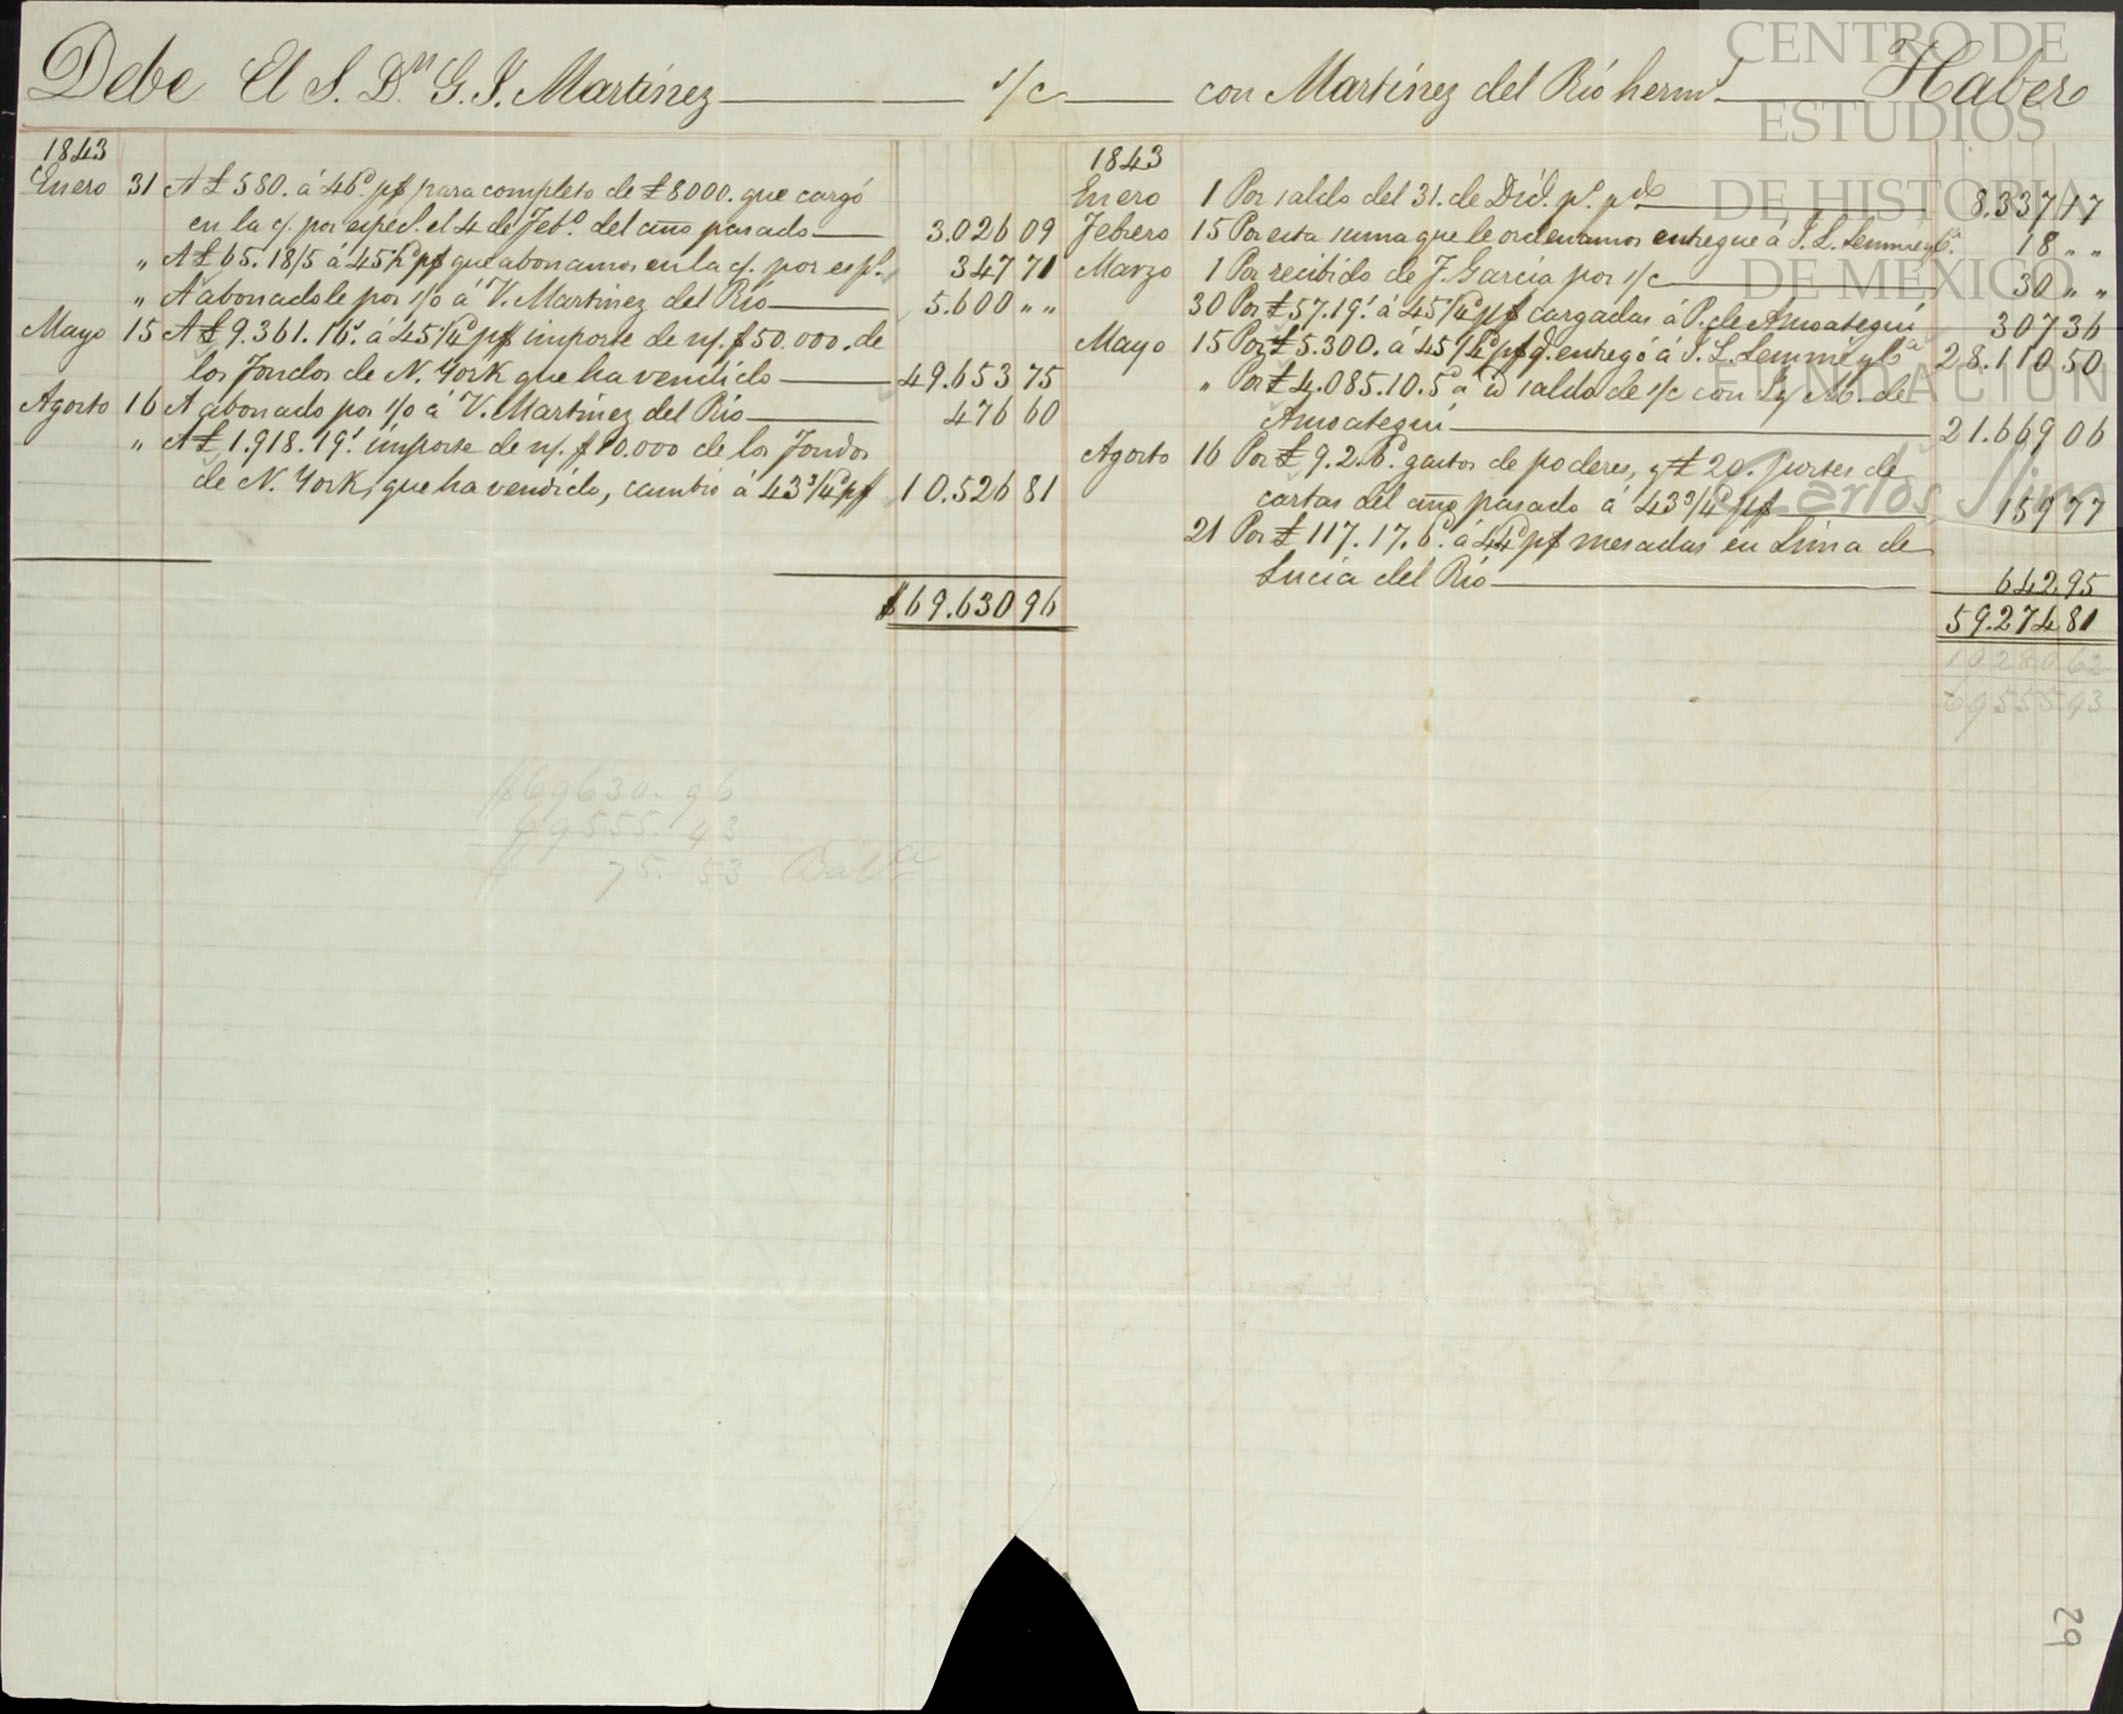 Debe El S. Dn G. J. Martínez s/c con Martínez del Río herms Haber
1843
Enero 31 A £ 580. á 46d. p$ para completo de £ 8000. que cargó
en la c/. por especl. el 4 de Febo. del año pasado 3.026 09
" A £ 65. 18/5 á 45½d p$ que abonamos en la c/. por espl. 347 71
" A abonadole por s/o á V. Martínez del Río 5.600 " "
Mayo 15 A £ 9.361. 16s. á 45¼d p$ importe de n/. $ 50.000. de
los fondos de N. York que ha vendido 49.653 75
Agosto 16 A abonado por s/o á V. Martínez del Río 476 60
" A £ 1.918. 19s. importe de n/. $ 10.000 de los fondos
de N. York, que ha vendido, cambio á 43¾d p$ 10.526 81
$ 69.630 96
1843
Enero 1 Por saldo del 31. de Dic. po. pdo 8.337 17
Febrero 15 Por esta suma que le ordenamos entregue á J. L. Lemmé y Ca. 18 " "
Marzo 1 Por recibido de J. García por s/c 30 " "
30 Por £ 57. 19s. á 45¼d p$ cargadas á P. de Amoategui 307 36
Mayo 15 Por £ 5.300. á 45¼d p$ q. entregó á J. L. Lemmé y Ca 28.110 50
" Por £ 4.085. 10. 5d á id saldo de s/c con L y M. de
Amoategui 21.669 06
Agosto 16 Por £ 9. 2. 6d. gastos de poderes, y £ 20. portes de
cartas del año pasado á 43¾d p$ 159 77
21 Por £ 117. 17. 6d. á 44d p$ mesadas en Lima de
Lucia del Río 642 95
59.274 81
10280 62
69555 43
$69630. 96
69555. 43
$ 75. 53 Balce
CENTRO DE
ESTUDIOS
DE HISTORIA
DE MEXICO
FUNDACIÓN
Carlos Slim
29